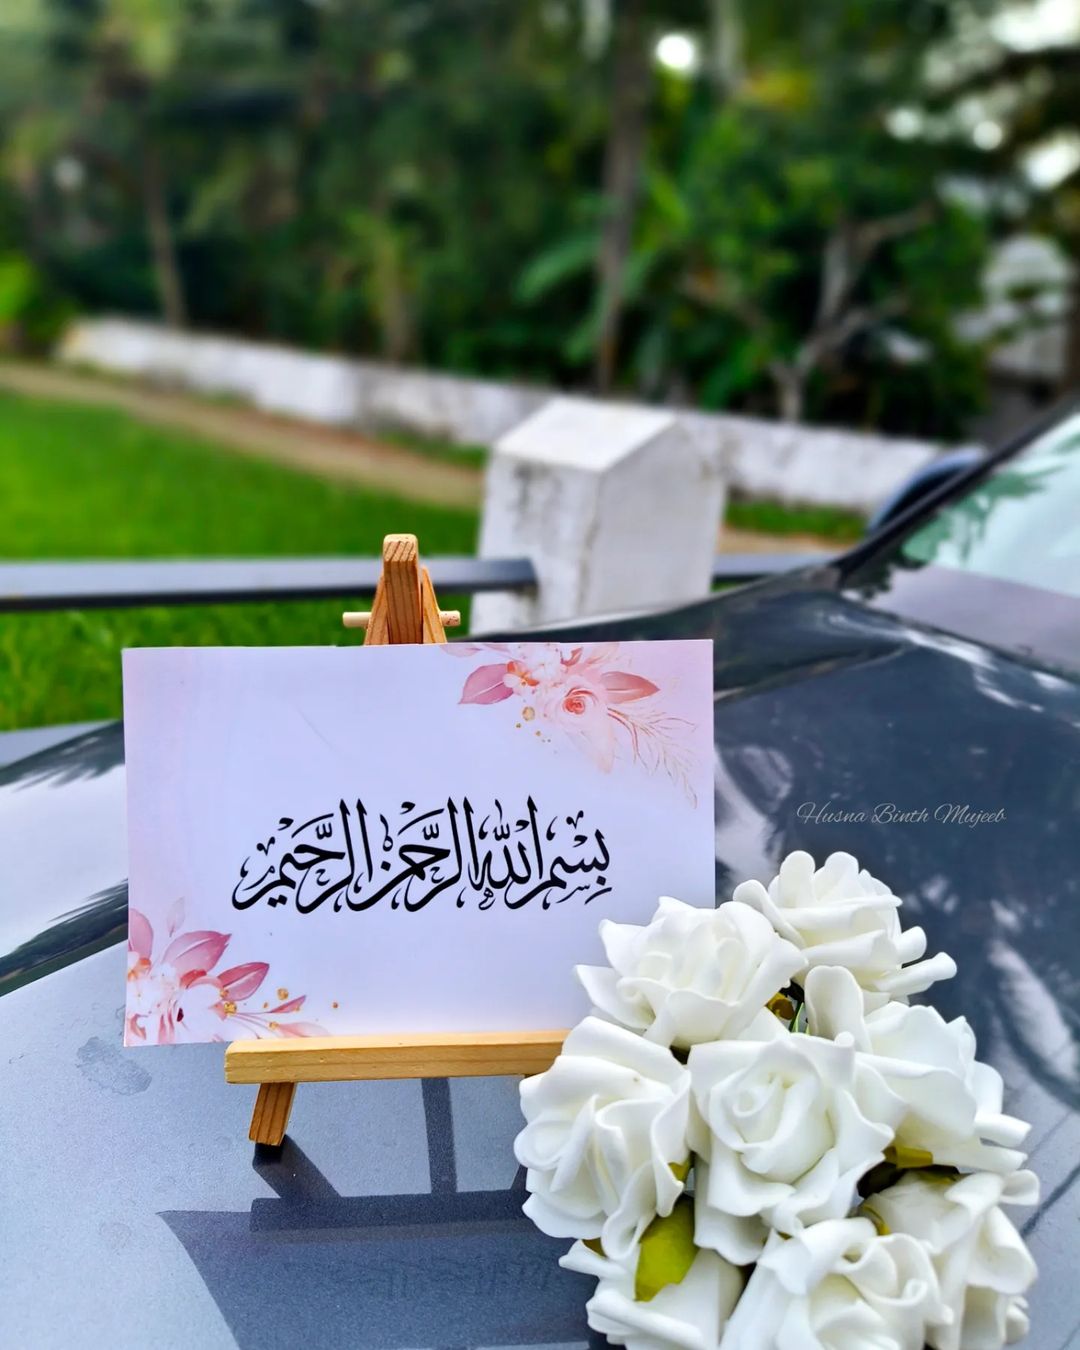 بسم الله الرحمن الرحيم
Husna Binth Mujeeb